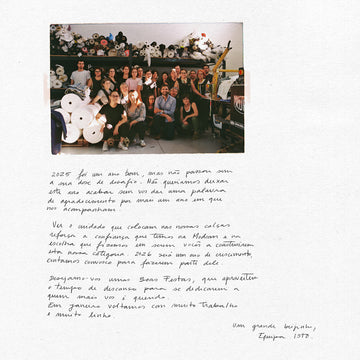 2025 foi um ano bom, mas não passou sem
a sua dose de desafio. Não queríamos deixar
este ano acabar sem vos dar uma palavra
de agradecimento por mais um ano em que
nos acompanharam.
Ver o cuidado que colocam nas nossas calças
reforça a confiança que temos na
escolha que fizemos em serem vocês a construírem
esta nossa categoria. 2026 será um ano de crescimento,
contamos convosco para fazerem parte dele.
Desejamo-vos umas Boas Festas, que aproveitem
o tempo de descanso para se dedicarem a
quem mais vos é querido.
Em janeiro voltamos com muito trabalho
e muita linha.
Um grande beijinho,
Equipa